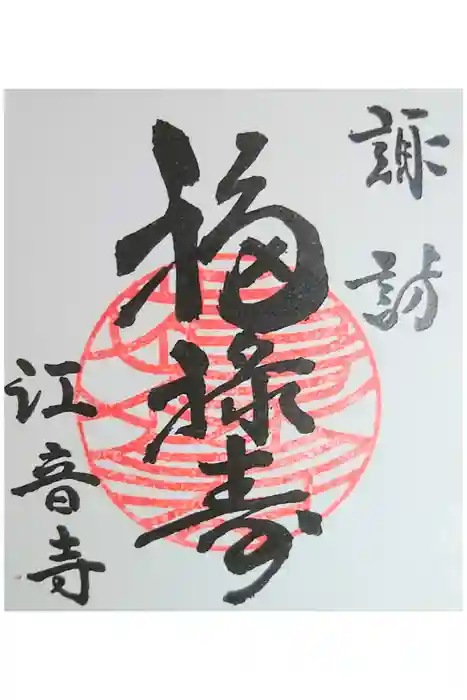 諏訪
福禄寿
江音寺